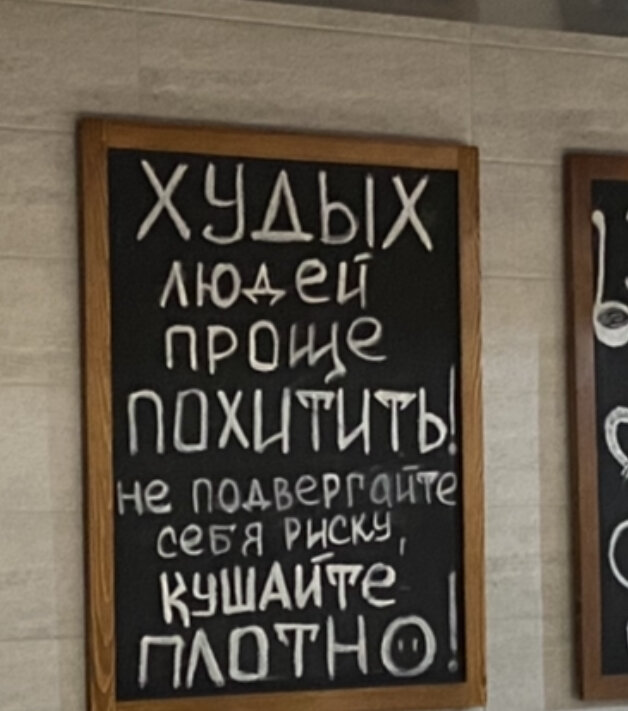 ХУДЫХ
людей
проще
ПОХИТИТЬ!
не подвергайте
себя риску,
кушайте
ПЛОТНО!